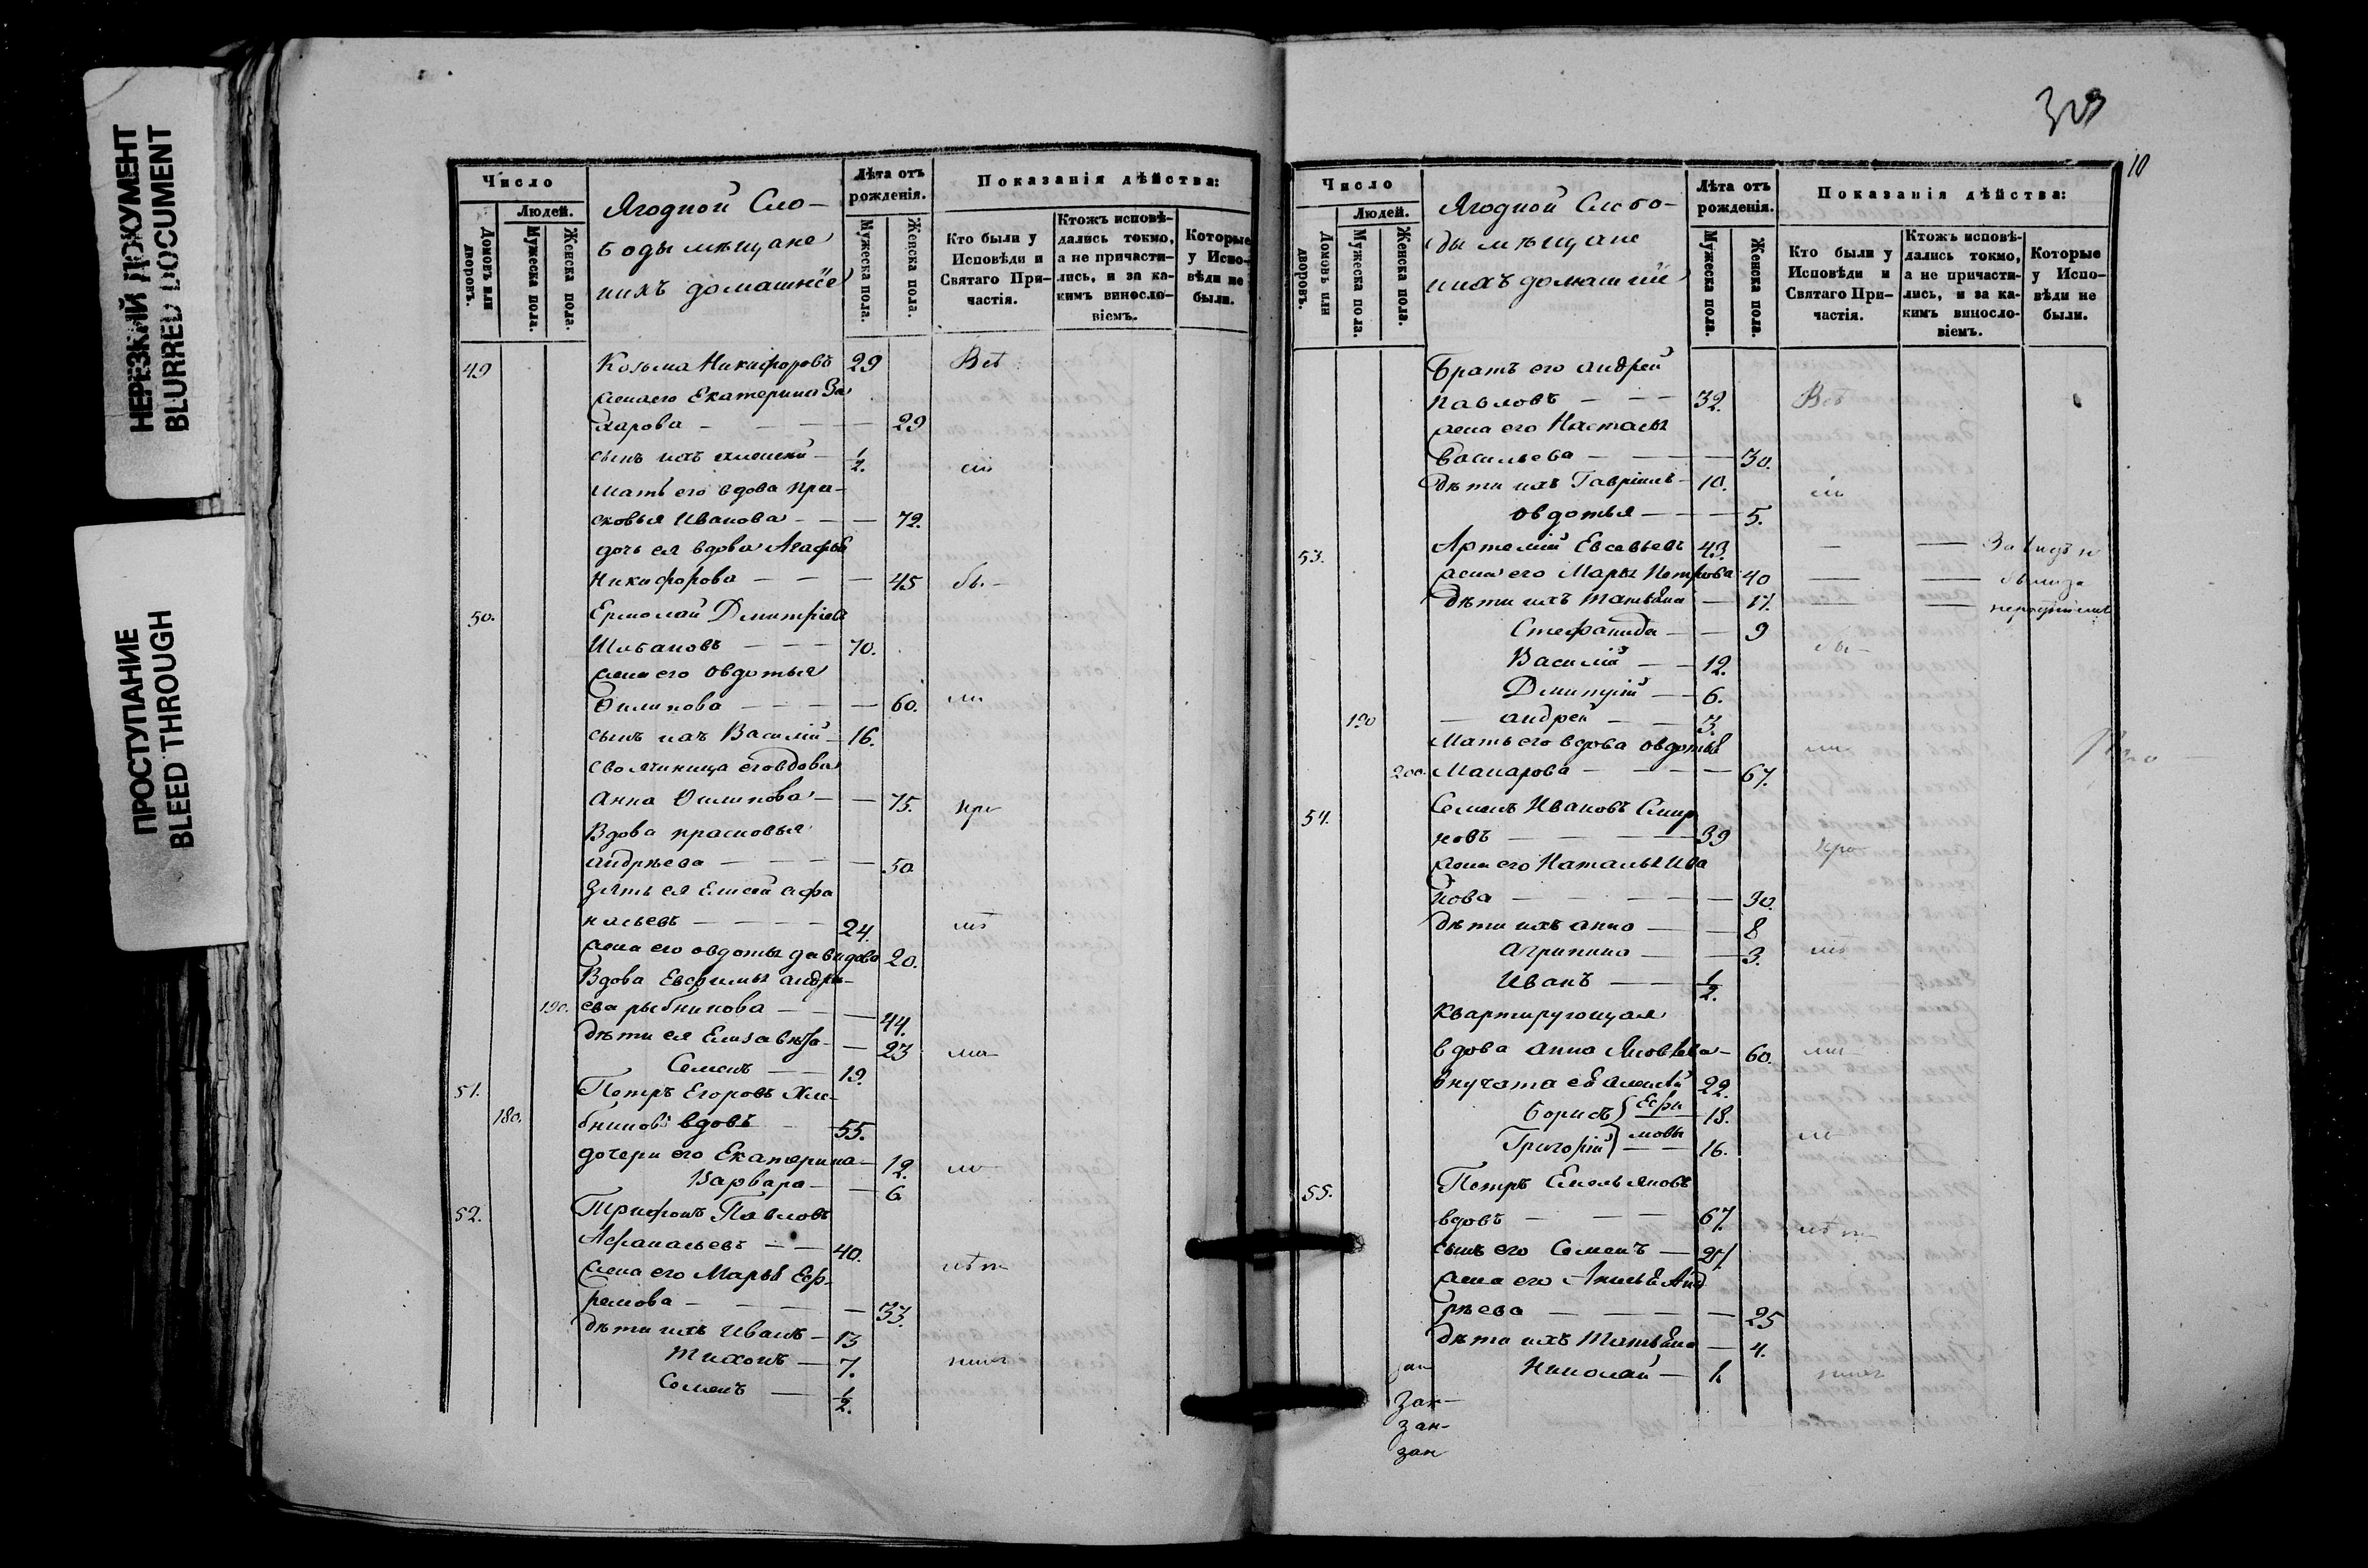 НЕРЕЗКИЙ ДОКУМЕНТ
BLURRED DOCUMENT
ПРОСТУПАНИЕ
BLEED THROUGH
Число
Людей.
Домовъ или дворовъ.
Мужеска пола.
Женска пола.
Ягодной Сло-
боды мѣщане
и ихъ домашніе
Лѣта отъ рожденія.
Мужеска пола.
Женска пола.
Показанія дѣйства:
Кто были у Исповѣди и Святаго При-частія.
Ктожъ исповѣ-дались токмо, а не причасти-лись, и за ка-кимъ винослo-віемъ.
Которые у Испо-вѣди не были.
49 Козьма Никифоровъ 29 Всѣ
жена его Екатерина За
харова - - - 29
сынъ ихъ Алексѣй - 1/2
мать его вдова Пра-
сковья Иванова - - - 72.
дочь ея вдова Агафья
Никифорова - - - 45 бы-
50. Ермолай Дмитріев
Шабановъ - - - 70.
жена его Овдотья
Филипова - - - 60. ли
сынъ ихъ Василій - 16.
своячиница его вдова
Анна Филипова - - 75. при
Вдова Прасковья
Андрѣева - - - 50
Зять ея Елисей Афа
насьевъ - - - 24.
жена его Овдотья Давидова 20.
Вдова Евфимья Андрѣ-
190. ева Рыбникова - - - 44.
дѣти ея Елизавѣта - - 23
Семенъ - - 19.
51. Петръ Егоровъ Хлѣ-
180. бниковъ вдовъ - 55.
дочери его Екатерина - 12.
Варвара - - 6
52. Трифонъ Павловъ
Афанасьевъ - - 40.
жена его Марья Еф-
ремова - - - 33.
дѣти ихъ Иванъ - 13
Тихонъ - 7.
Семенъ - 1/2.
10
Число
Людей.
Домовъ или дворовъ.
Мужеска пола.
Женска пола.
Ягодной Слобо-
ды мѣщане
и ихъ домашніе
Лѣта отъ рожденія.
Мужеска пола.
Женска пола.
Показанія дѣйства:
Кто были у Исповѣди и Святаго При-частія.
Ктожъ исповѣ-дались токмо, а не причасти-лись, и за ка-кимъ винослo-віемъ.
Которые у Испо-вѣди не были.
Братъ его Андрей
Павловъ - - - 32. Всѣ
жена его Наталья
Васильева - - - 30.
дѣти ихъ Гавріилъ - 10.
Овдотья - - - 5.
53. Артемій Евсевьевъ 43.
жена его Марья Петрова 40
дѣти ихъ Татьяна - 17.
Стефанида - - 9
Василій - - 12. бы-
Дмитрій - - 6.
190 Андрей - - 3.
Мать его вдова Овдотья
200. Макарова - - - 67. ли
54. Семенъ Ивановъ Смир
новъ - - - 39 при
жена его Наталья Ива
нова - - - 30.
дѣти ихъ Анна - - 8
Агрипина - - 3.
Иванъ - - 1/2.
Квартирующая
вдова Анна Яковлева - 60.
внучата ея Алексѣй 22.
Борисъ Ефи 18.
Григорій мовы - - 16.
55. Петръ Емельяновъ
вдовъ - - - 67.
сынъ его Семенъ - 27.
жена его Акилья Анд
рѣева - - - 25
дѣти ихъ Татьяна - 4.
Николай - 1.
зак-
зак-
зак